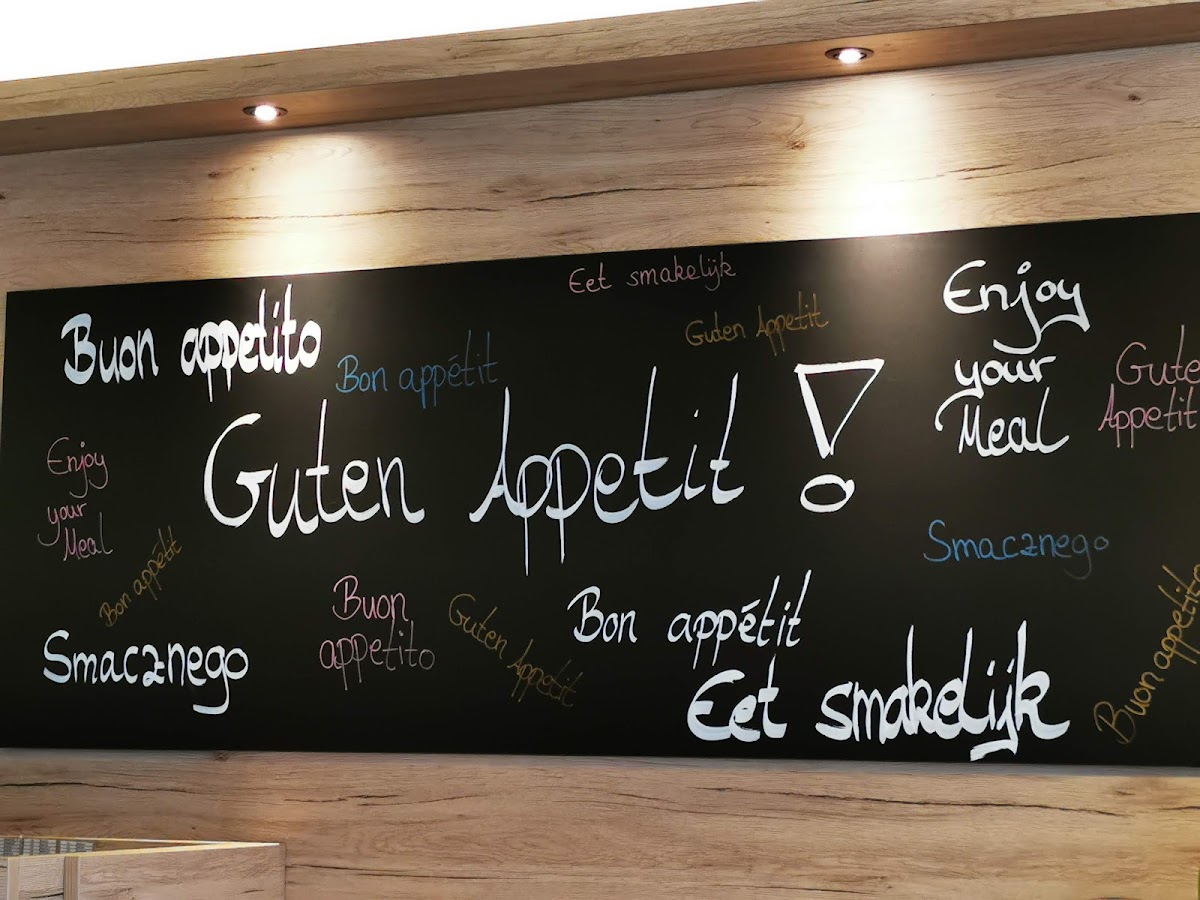 Eet smakelijk
Buon appetito
Bon appétit
Guten Appetit
Enjoy
your
Meal
Guten Appetit!
Gute
Appetit
Enjoy
your
Meal
Bon appétit
Smacznego
Smacznego
Buon
appetito
Guten Appetit
Bon appétit
Eet smakelijk
Buon appetito